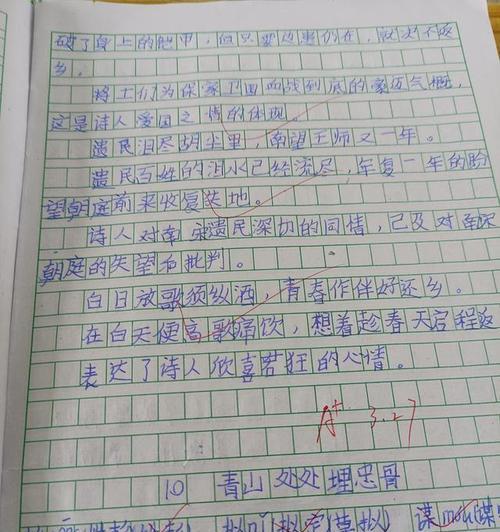 破了身上的铠甲,但只要边患仍在,就决不返
乡。
将士们为保家卫国血战到底的豪迈气概,
这是诗人爱国之情的体现。
遗民泪尽胡尘里,南望王师又一年。
遗民百姓的泪水已经流尽,年复一年的盼
望朝庭前来收复失地。
诗人对南宋遗民深切的同情,已及对南宋
朝庭的失望和批判。
白日放歌须纵酒,青春作伴好还乡。
在白天便高歌痛饮,想着趁春天启程返
表达了诗人欣喜若狂的心情。
A+ 3.27
10 青山处处埋忠骨